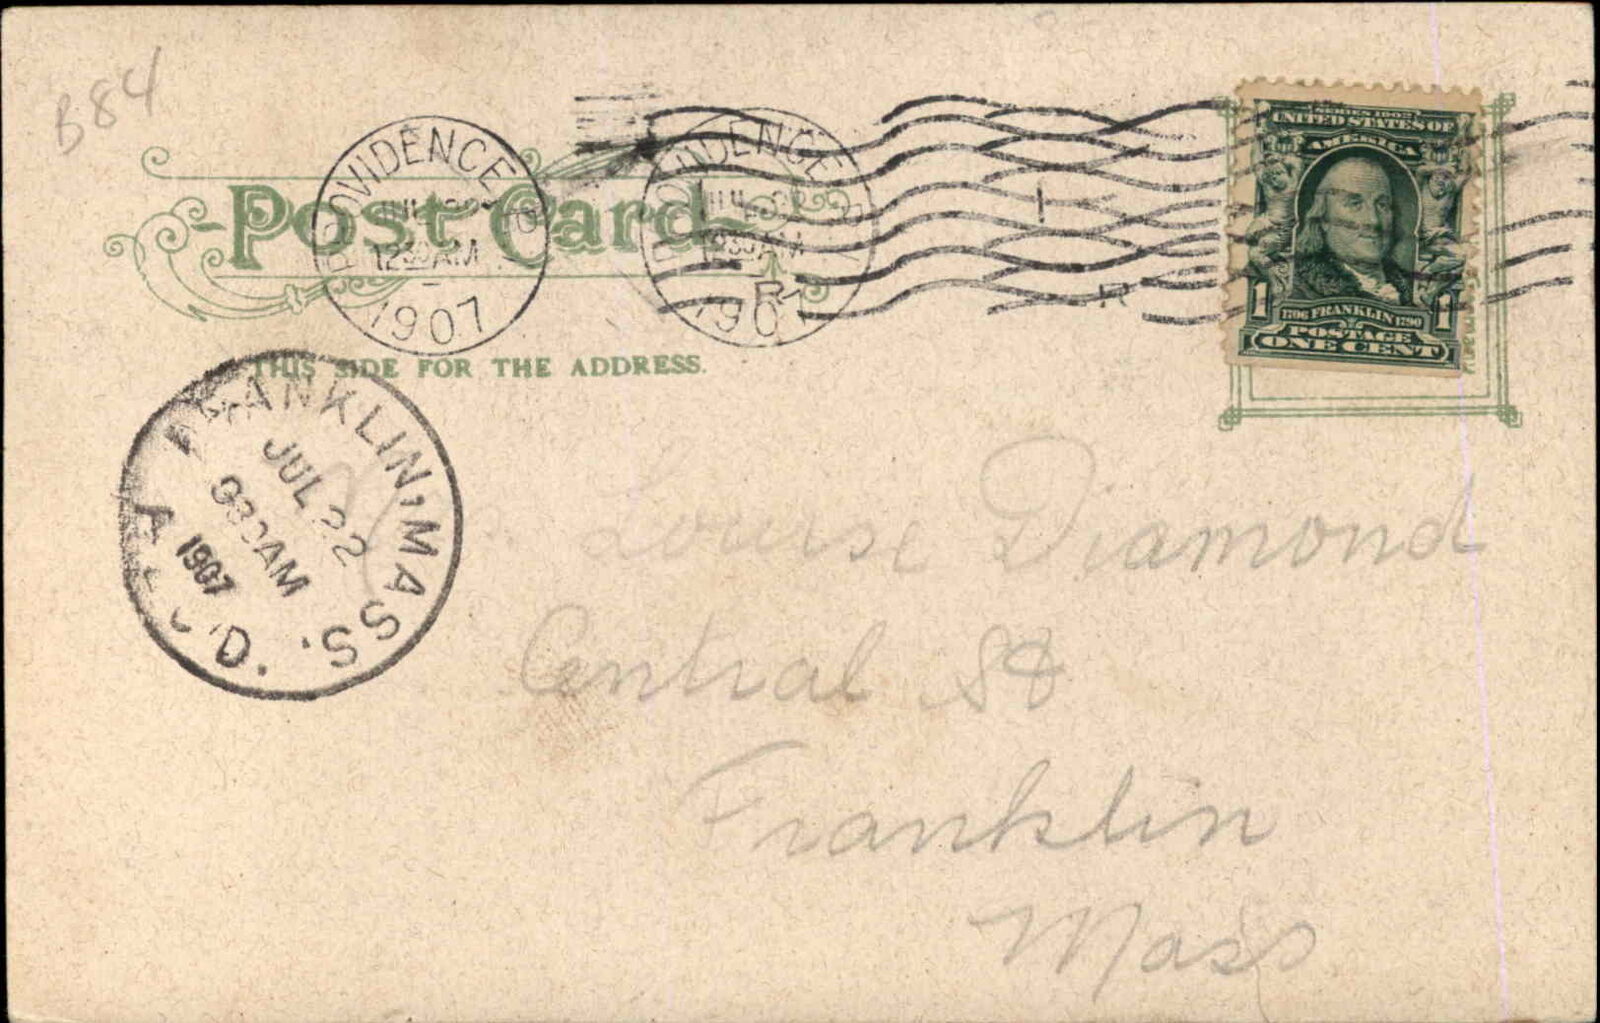 B84
PROVIDENCE
JUL 22
12 30 AM
1907
PROVIDENCE
12 30 AM
1907
R
SERIES 1902
UNITED STATES OF
AMERICA
1 1
1706 FRANKLIN 1790
POSTAGE
ONE CENT
Post Card
THIS SIDE FOR THE ADDRESS.
FRANKLIN, MASS.
JUL 22
930AM
1907
Louise Diamond
Central St
Franklin
Mass.